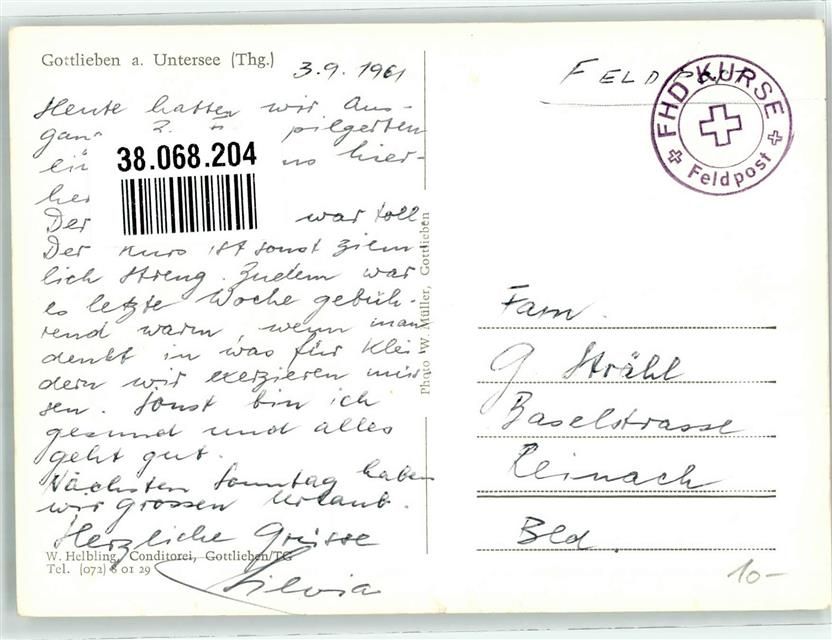 Gottlieben a. Untersee (Thg.)
3.9.1961
Heute hatten wir Aus-
gang pilgerten
hier-
her
Der war toll
Der Kurs ist sonst ziem
lich streng. Zudem war
es letzte Woche gebüh-
rend warm, wenn man
denkt in was für Klei
dern wir exerzieren müs
sen. Sonst bin ich
gesund und alles
geht gut.
Nächsten Sonntag haben
wir grossen Urlaub.
Herzliche Grüsse
Silvia
38.068.204
W. Helbling, Conditorei, Gottlieben/TG
Tel. (072) 8 01 29
Photo W. Müller, Gottlieben
FELDPOST
FHD-KURSE
Feldpost
Fam.
G. Strähl
Baselstrasse
Reinach
Bld.
10-